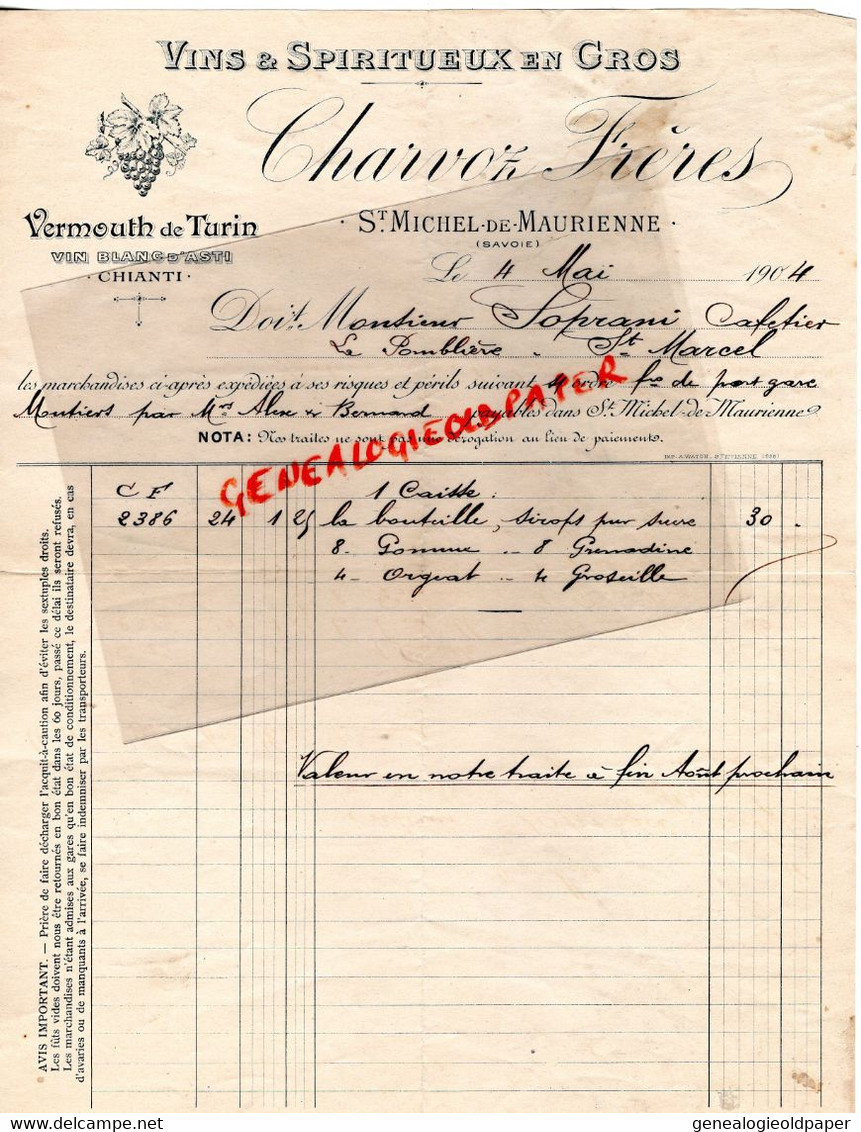 VINS & SPIRITUEUX EN GROS
Charvoz Frères
Vermouth de Turin
VIN BLANC D'ASTI
· CHIANTI ·
· ST MICHEL-DE-MAURIENNE ·
(SAVOIE)
Le 4 Mai 1904
Doit Monsieur Soprani Cafetier
La Pomblière - St Marcel
les marchandises ci-après expédiées à ses risques et périls suivant s/ ordre fco de port gare
Moutiers par Mrs Alex & Bernard payables dans St Michel-de-Maurienne
NOTA: Nos traites ne sont pas une dérogation au lieu de paiement.
GENEALOGIEOLDPAPER
C F 1 Caisse :
2386 24 1 25 la bouteille, sirops pur sucre 30 -
8 - Gomme - 8 Grenadine
4 - Orgeat - 4 Groseille
Valeur en notre traite à fin Août prochain
AVIS IMPORTANT. — Prière de faire décharger l'acquit-à-caution afin d'éviter les sextuples droits.
Les fûts vides doivent nous être retournés en bon état dans les 60 jours, passé ce délai ils seront refusés.
Les marchandises n'étant admises aux gares qu'en bon état de conditionnement, le destinataire devra, en cas
d'avaries ou de manquants à l'arrivée, se faire indemniser par les transporteurs.
delcampe.net
genealogieoldpaper